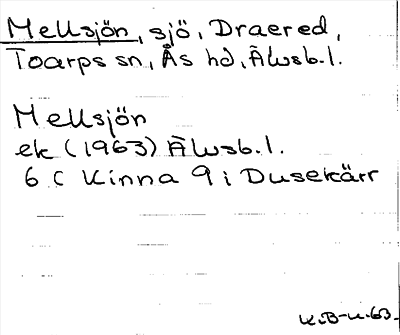 Mellsjön, sjö, Draered,
Toarps sn, Ås hd, Älvsb.l.
Mellsjön
ek (1963) Älvsb.l.
6 C Kinna 9 i Dusekärr
K.B-K.63.